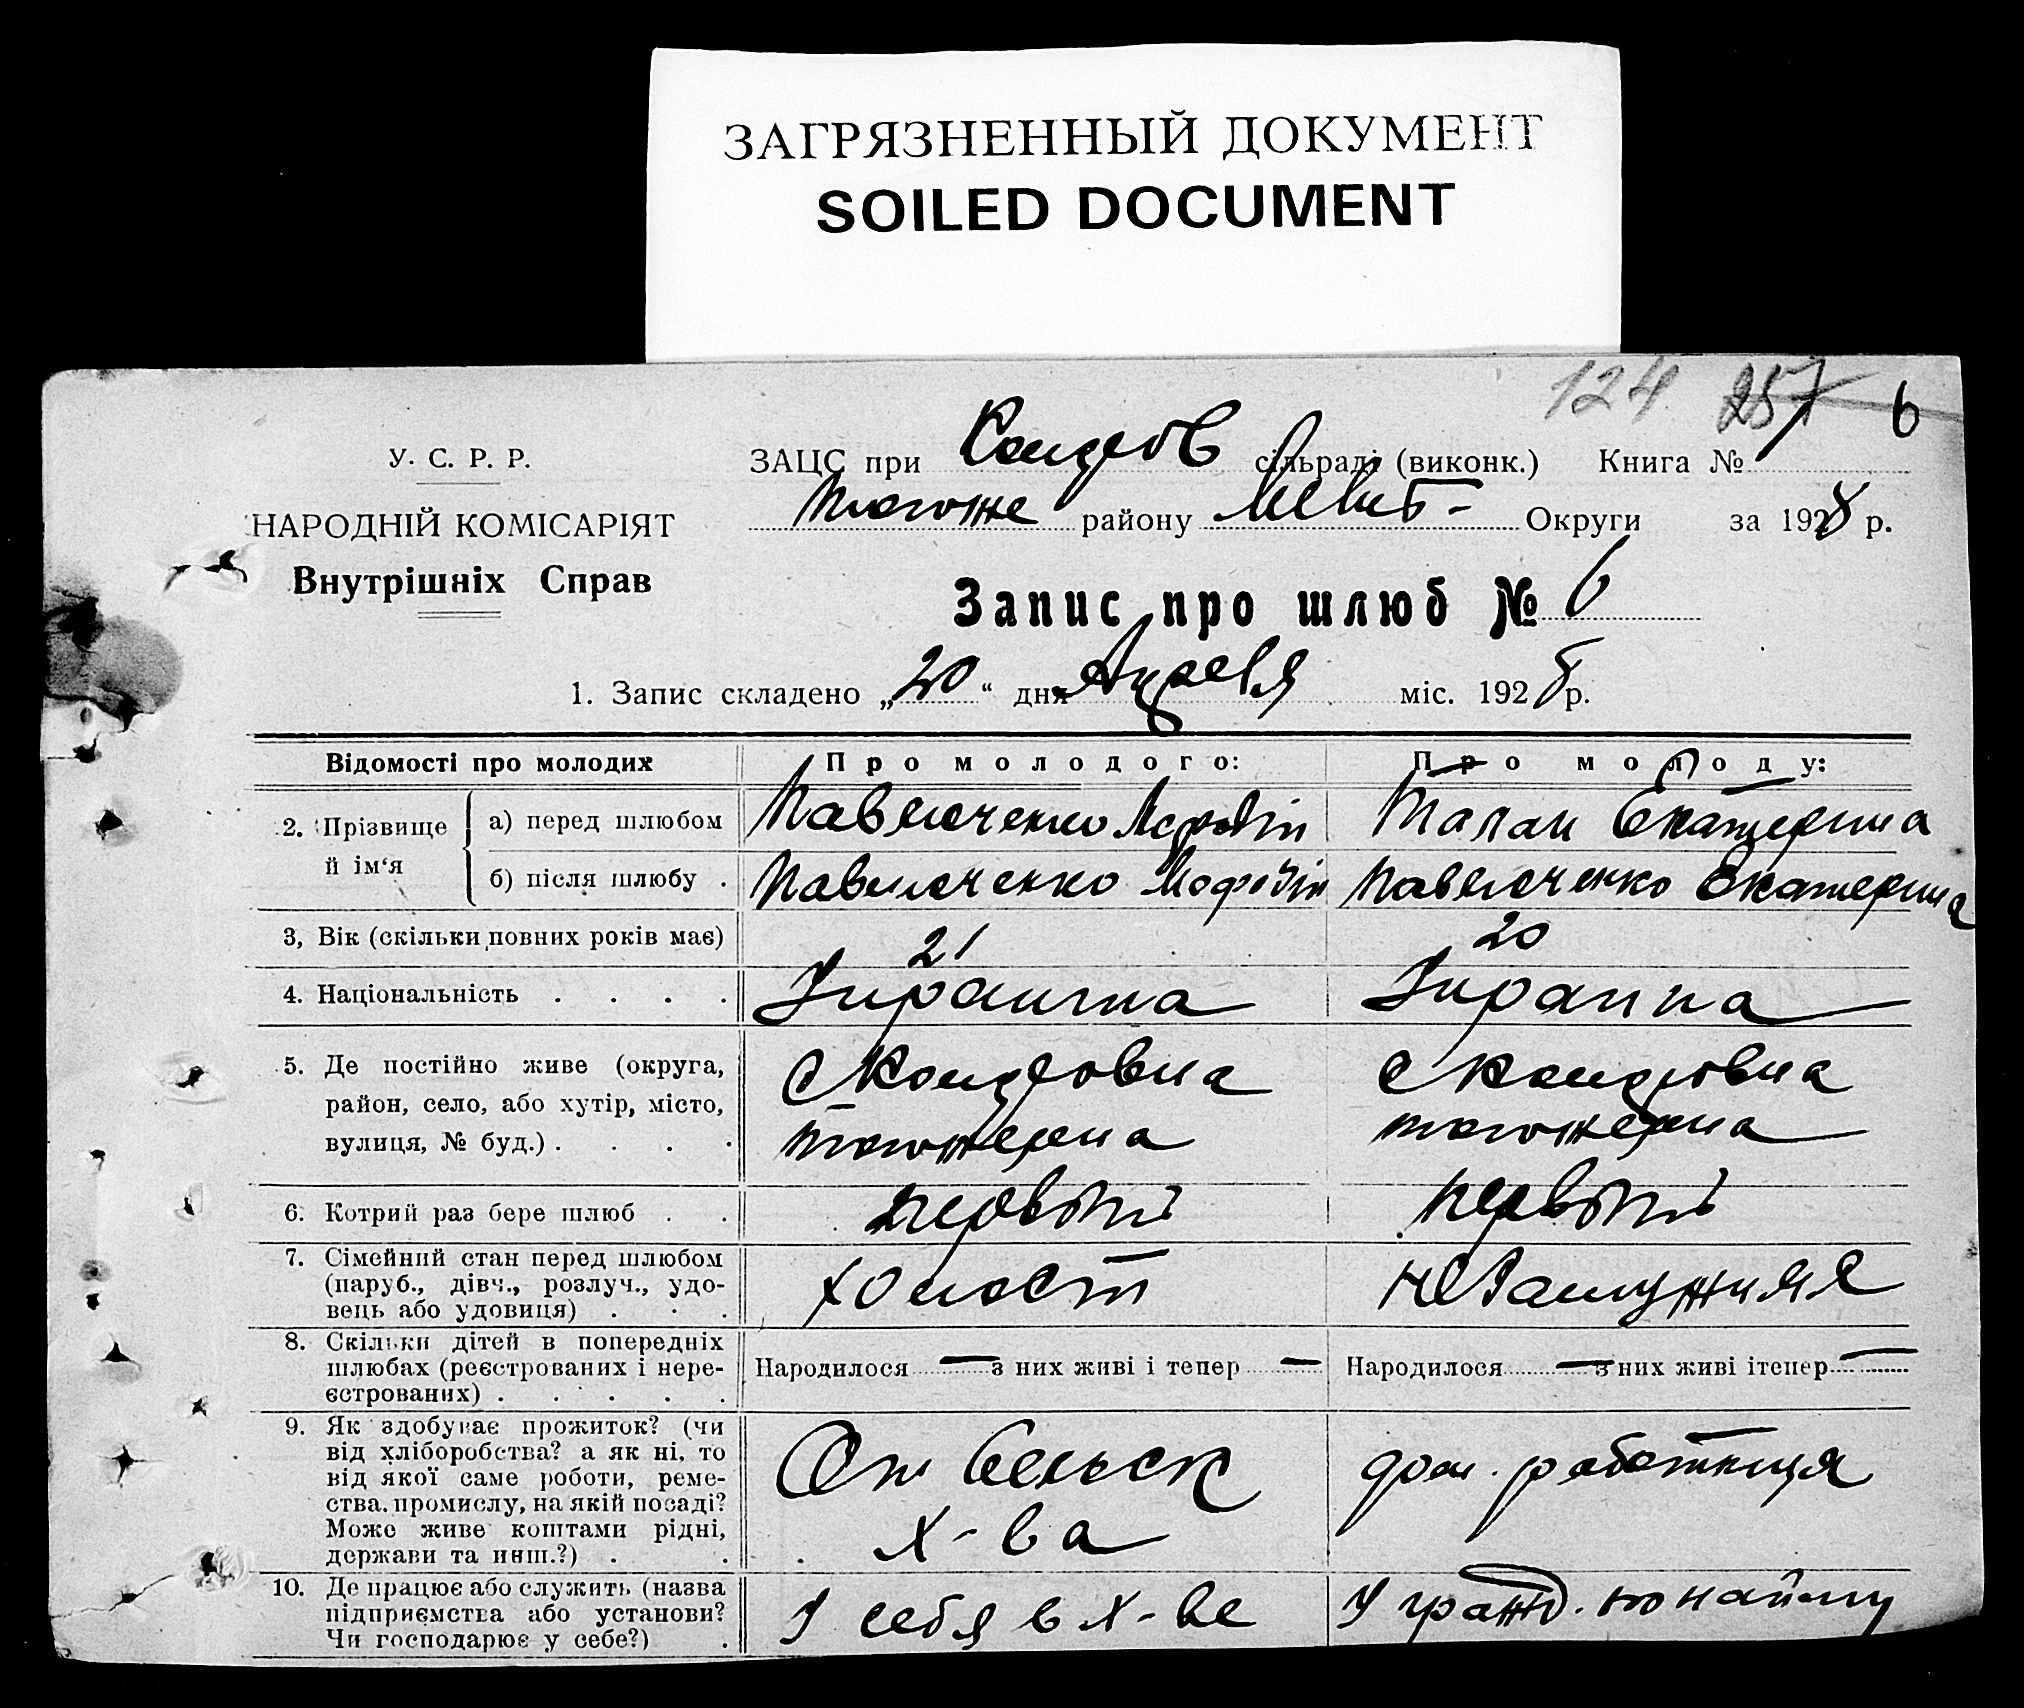 ЗАГРЯЗНЕННЫЙ ДОКУМЕНТ
SOILED DOCUMENT
124 257 6
У. С. Р. Р.
ЗАЦС при сільраді (виконк.) Книга №
району Округи за 1928 р.
НАРОДНІЙ КОМІСАРІЯТ
Внутрішніх Справ
Запис про шлюб № 6
1. Запис складено „20“ дня Апреля міс. 1928 р.
Відомості про молодих
Про молодого:
Про молоду:
2. Прізвище й ім‘я
а) перед шлюбом
Павлюченко
Талан Екатерина
б) після шлюбу .
Павлюченко
Павлюченко Екатерина
3, Вік (скільки повних років має)
21
20
4. Національність . . . .
5. Де постійно живе (округа,
район, село, або хутір, місто,
вулиця, № буд.) . . . .
6. Котрий раз бере шлюб . .
первый
первый
7. Сімейний стан перед шлюбом
(паруб., дівч., розлуч., удо-
вець або удовиця) . . .
холост
незамужняя
8. Скільки дітей в попередніх
шлюбах (реєстрованих і нере-
єстрованих) . . . . .
Народилося — з них живі і тепер —
Народилося — з них живі ітепер —
9. Як здобуває прожиток? (чи
від хліборобства? а як ні, то
від якої саме роботи, реме-
ства, промислу, на якій посаді?
Може живе коштами рідні,
держави та инш.?) . .
От сельск
х-ва
дом. работница
10. Де працює або служить (назва
підприємства або установи?
Чи господарює у себе?) .
У себя в х-ве
У гражд. по найму